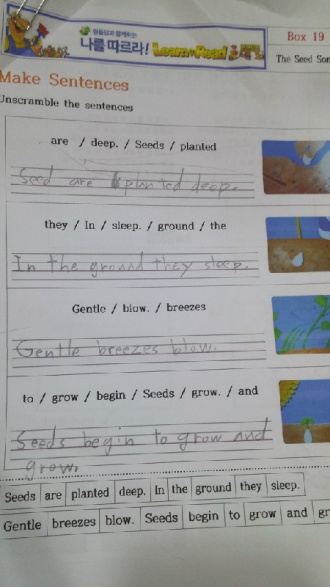 튼튼영어 함께하는
나를 따르라! Learn to Read
Box 19
The Seed Son
Make Sentences
Unscramble the sentences
are / deep. / Seeds / planted
Seed are planted deep.
they / In / sleep. / ground / the
In the ground they sleep.
Gentle / blow. / breezes
Gentle breezes blow.
to / grow / begin / Seeds / grow. / and
Seeds begin to grow and
grow.
Seeds are planted deep. In the ground they sleep.
Gentle breezes blow. Seeds begin to grow and gr